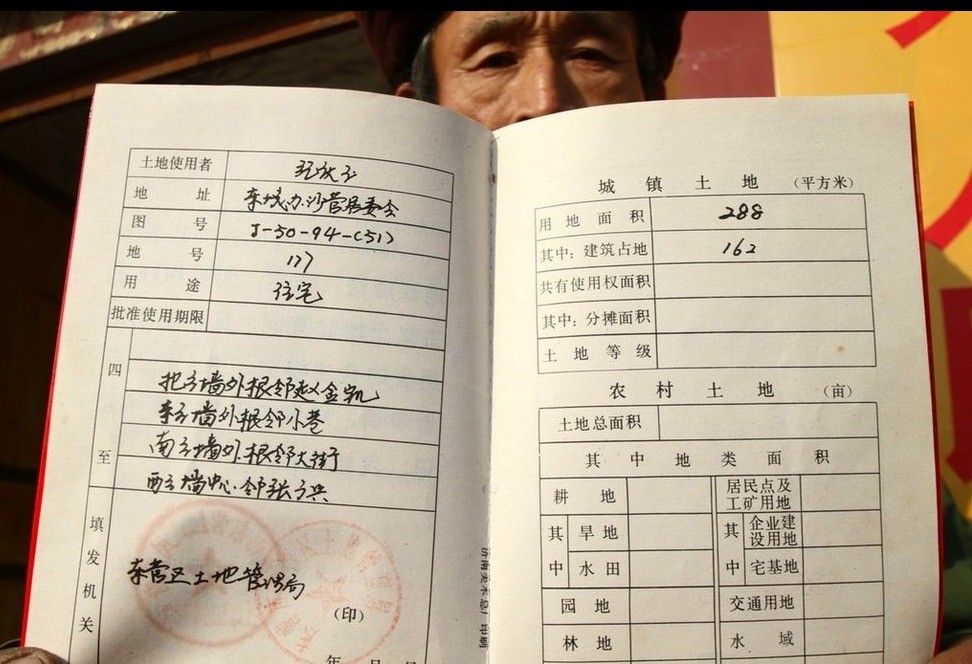 土地使用者
地 址 东城办沙营居委会
图 号 J-50-94-(51)
地 号 177
用 途 住宅
批准使用期限
四 至
北至墙外根邻赵金凯
东至墙外根邻小巷
南至墙外根邻大街
西至墙中心邻张
填发机关
东营区土地管理局
(印)
年 月 日
济南美术总厂印刷
城 镇 土 地 (平方米)
用 地 面 积 288
其中: 建筑占地 162
共有使用权面积
其中: 分摊面积
土 地 等 级
农 村 土 地 (亩)
土地总面积
其 中 地 类 面 积
耕 地 居民点及工矿用地
其中 旱 地 其中 企业建设用地
水 田 宅基地
园 地 交通用地
林 地 水 域